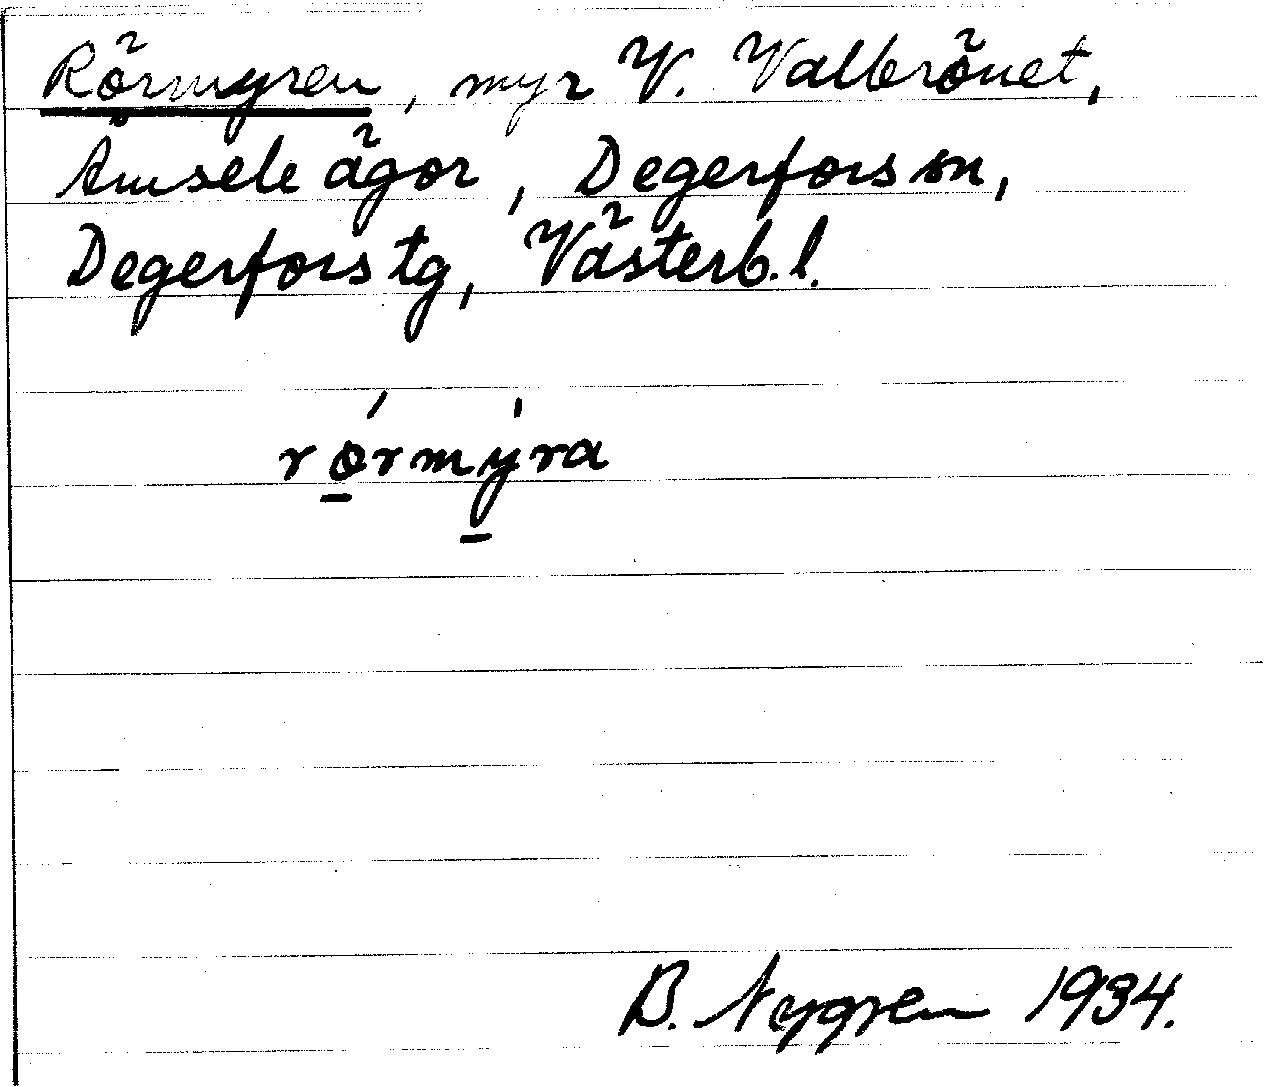 Rörmyren, myr V. Valbrönet,
Åmsele ägor, Degerfors sn,
Degerfors tg, Västerb. l.
rørmyra
B. Nygren 1934.